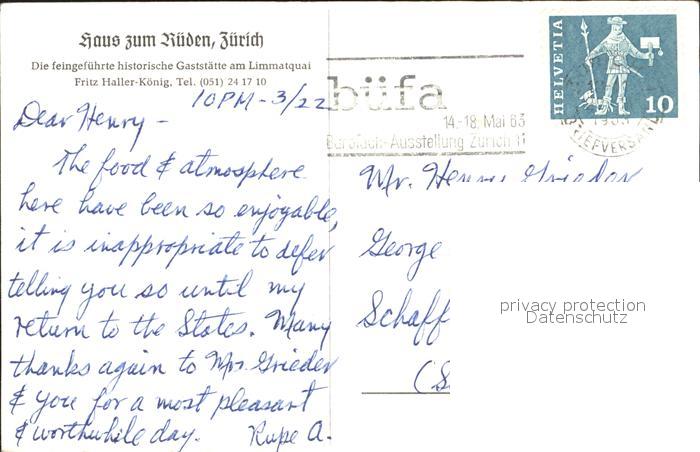 Haus zum Rüden, Zürich
Die feingeführte historische Gaststätte am Limmatquai
Fritz Haller-König, Tel. (051) 24 17 10
10 PM - 3/22
Dear Henry -
The food & atmosphere
here have been so enjoyable,
it is inappropriate to defer
telling you so until my
return to the States. Many
thanks again to Mr. Grieder
& you for a most pleasant
& worthwhile day. Rupe A.
büfa
14.-18. Mai 63
-Ausstellung Zürich
HELVETIA
10
BRIEFVERSAND
Mr. Henry Grieder
George
Schaff
(S
privacy protection
Datenschutz